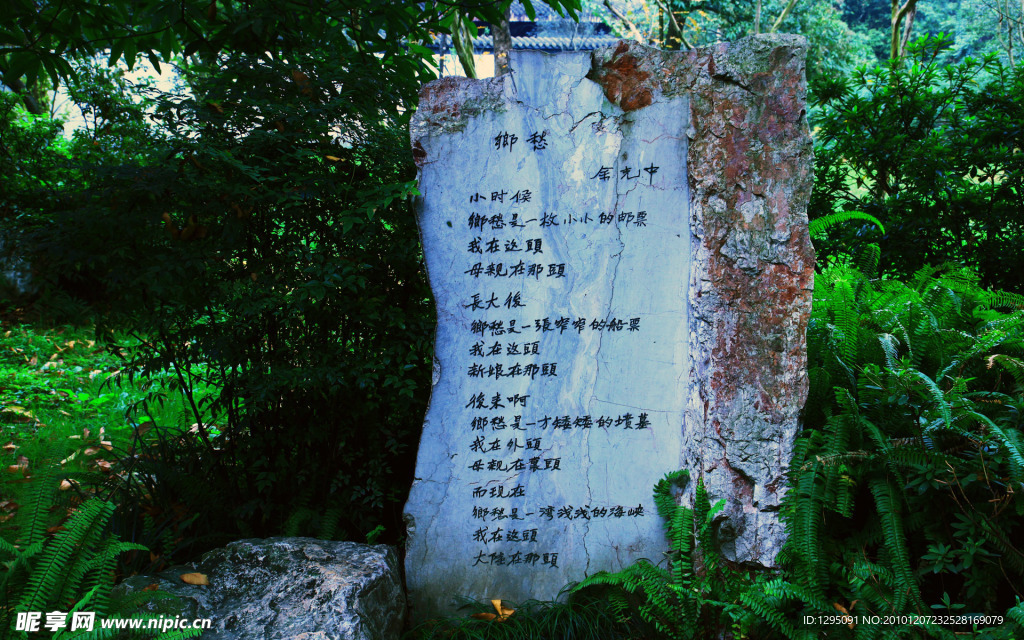 鄉愁
余光中
小时候
鄉愁是一枚小小的邮票
我在这頭
母親在那頭
長大後
鄉愁是一張窄窄的船票
我在这頭
新娘在那頭
後来啊
鄉愁是一方矮矮的墳墓
我在外頭
母親在裏頭
而现在
鄉愁是一湾浅浅的海峡
我在这頭
大陸在那頭
昵享网 www.nipic.cn
ID:1295091 NO:20101207232528169079